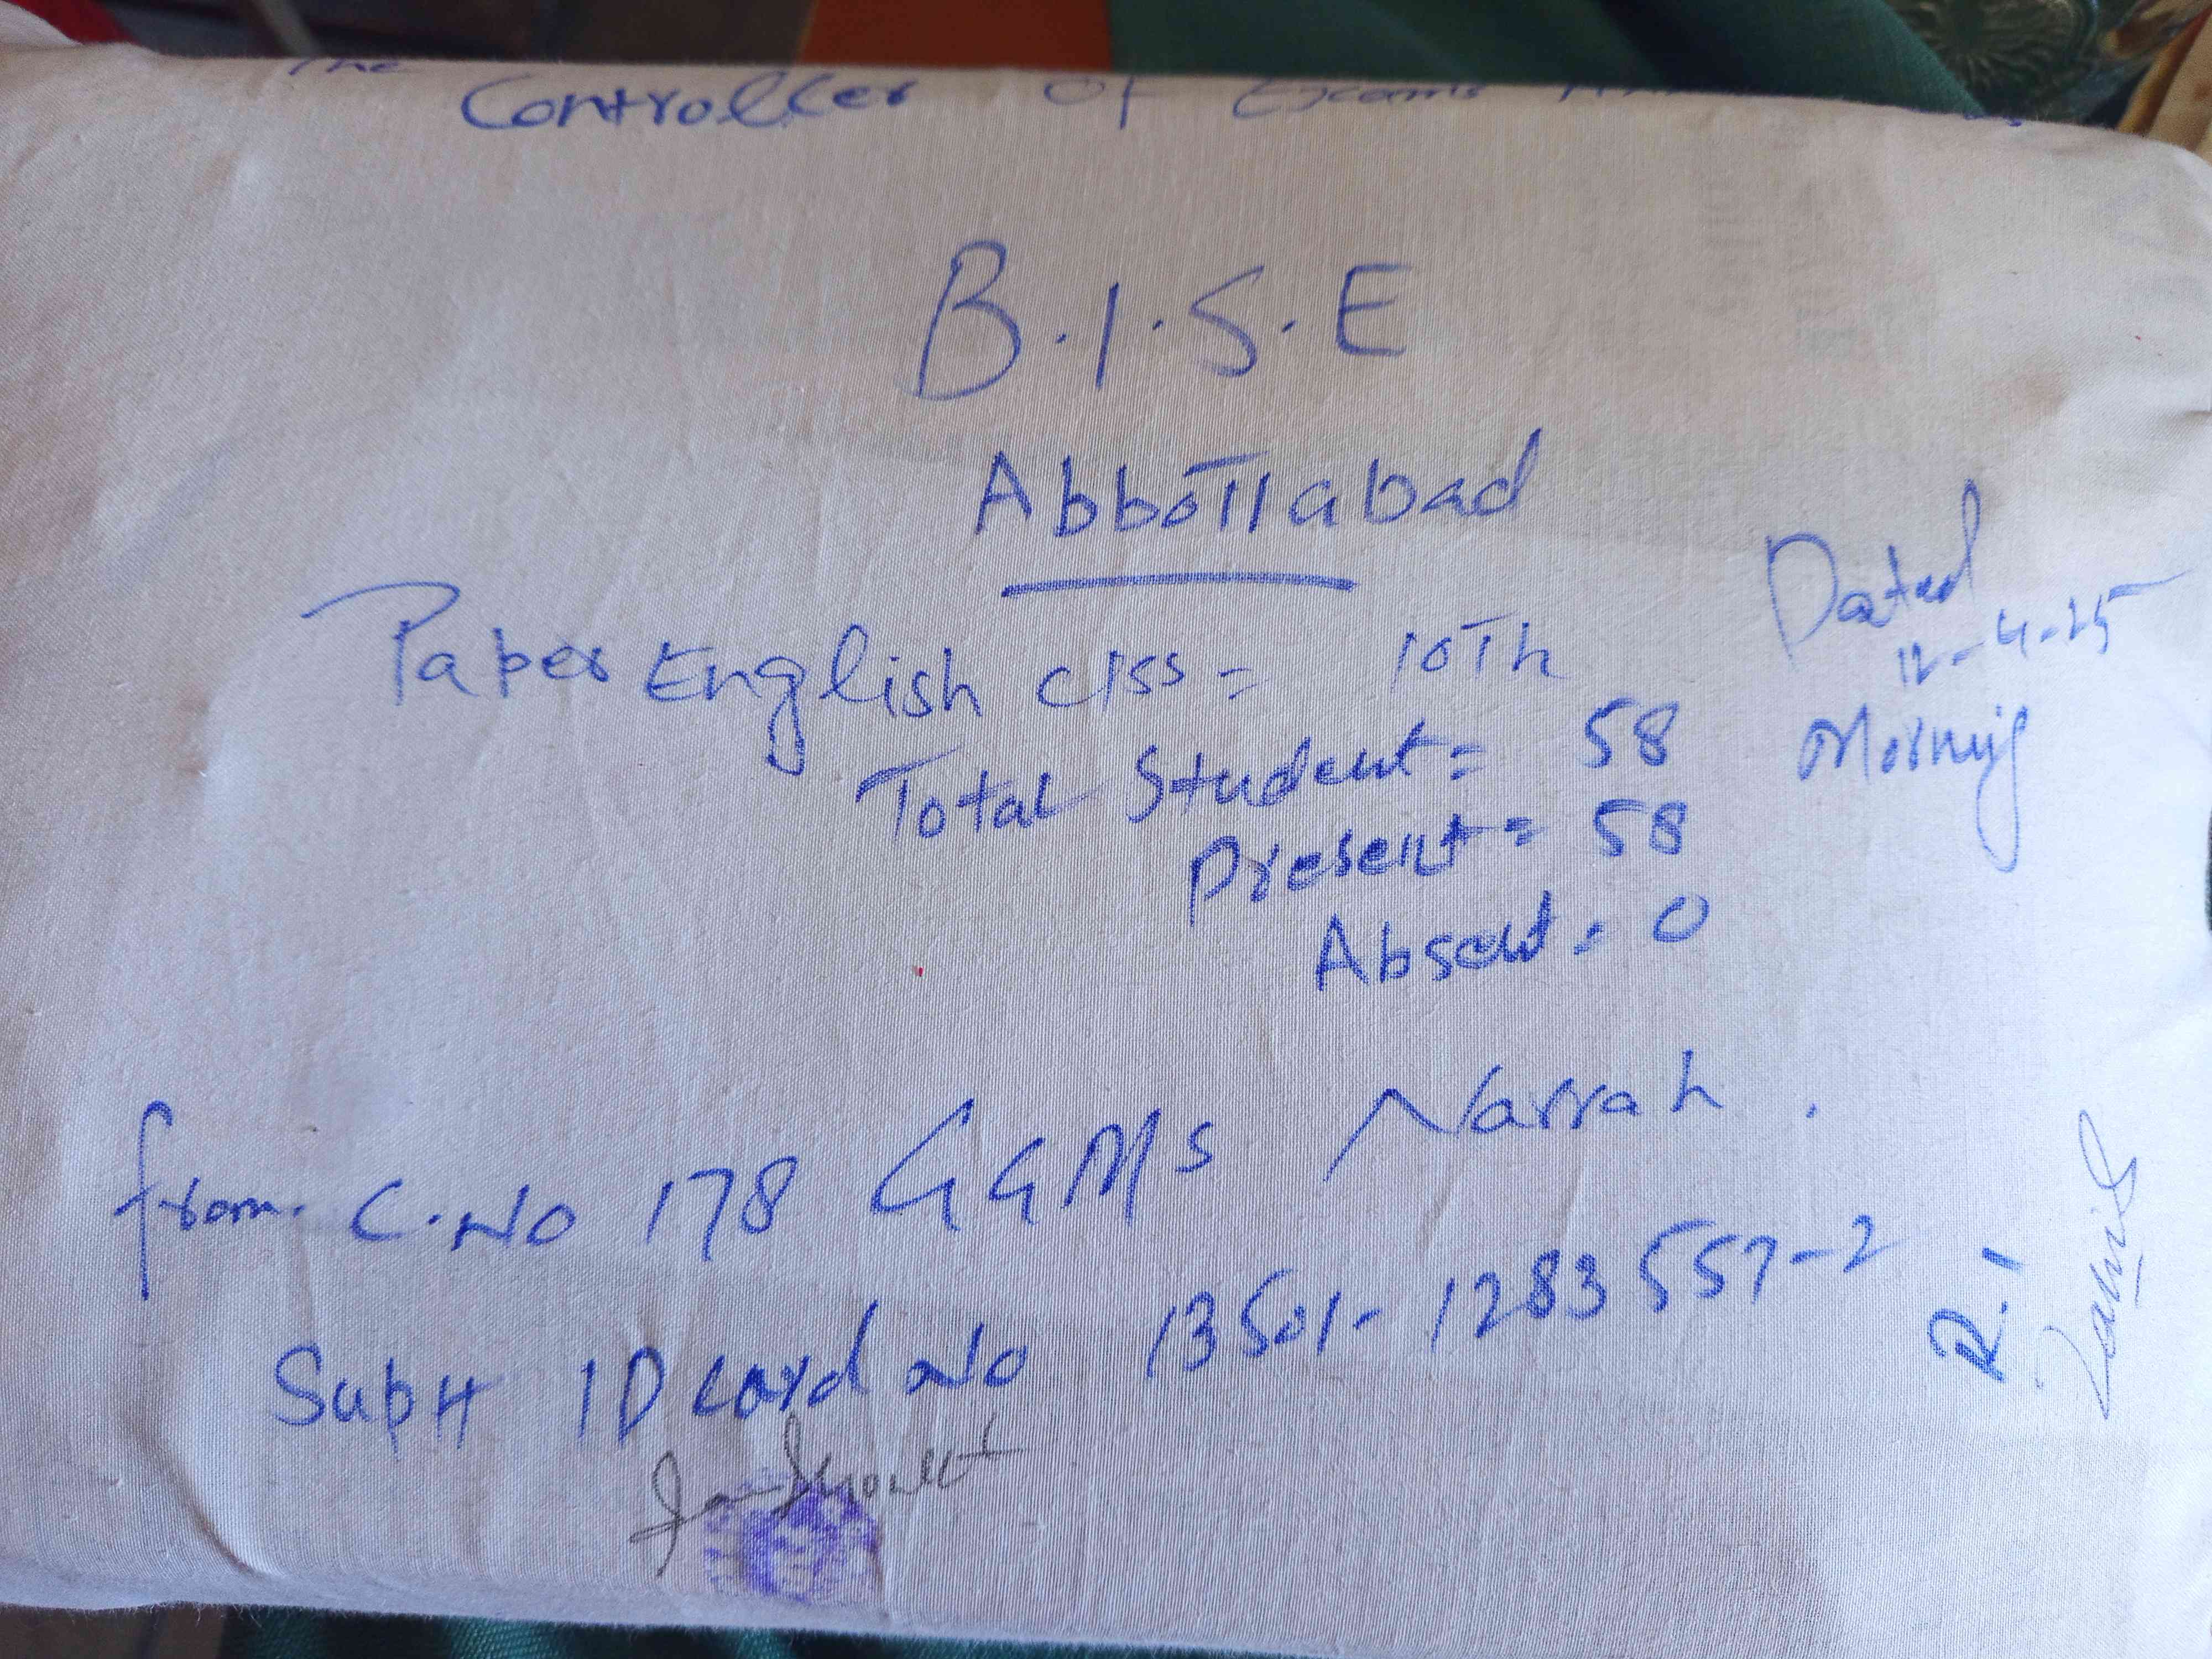 The
Controller of Exams
B.I.S.E
Abbottabad
Paper English clss = 10Th
Dated
12-4-25
Morning
Total Student = 58
Present = 58
Absent = 0
from. C.No 178 GGMS Narrah.
Supt ID Card No 13501-1283557-2
R.I